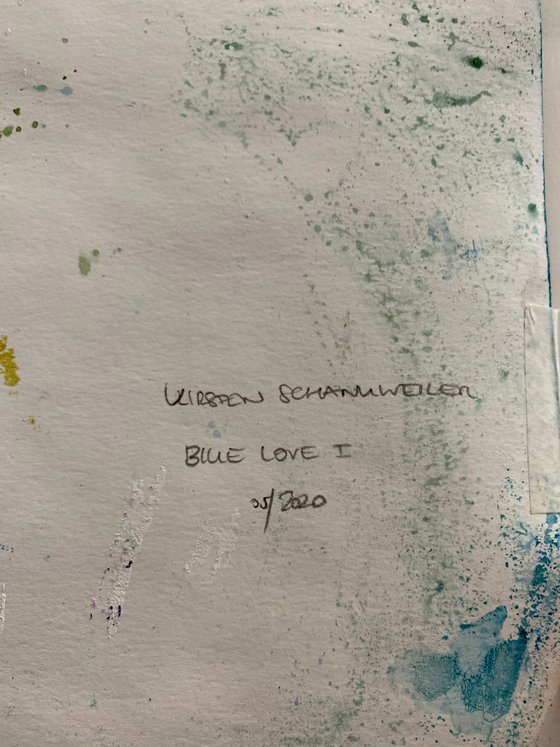 KIRSTEN SCHANKWEILER
BLUE LOVE I
05/2020